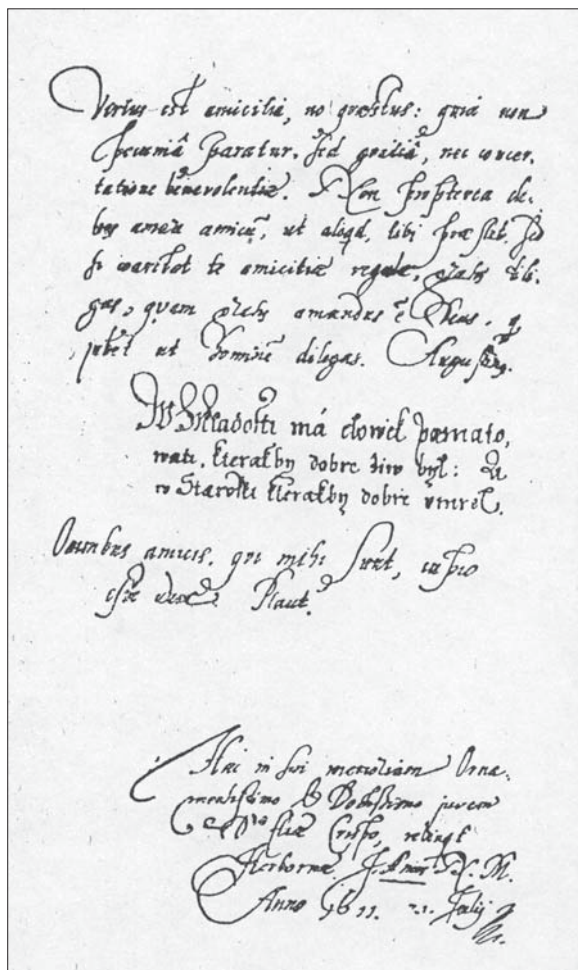 Verius est amicitia, no quæstus: quia non
pecuniâ paratur. Sed gratiâ, nec concer,
tatione benevolentiæ. Non propterea de,
bes amare amicũ, ut aliqd, tibi præstet. Sed
amicitiæ regulæ,
gas, quem amandus ẽ Deus. q
jubet ut dilegas. Augusting.
W Mladosti má clowek pamato,
wati, kterakby dobre ziw byl: A
w Starosti kterakby dobre vmrel.
Omnibus amicis. qui mihi sunt,
esse Plaut.
in sui memoriam Orna,
mentissimo & Doctissimo juveni
Crispo, relinqt
Herbornæ, J. Amos N. M.
Anno 1611. 21. Julij